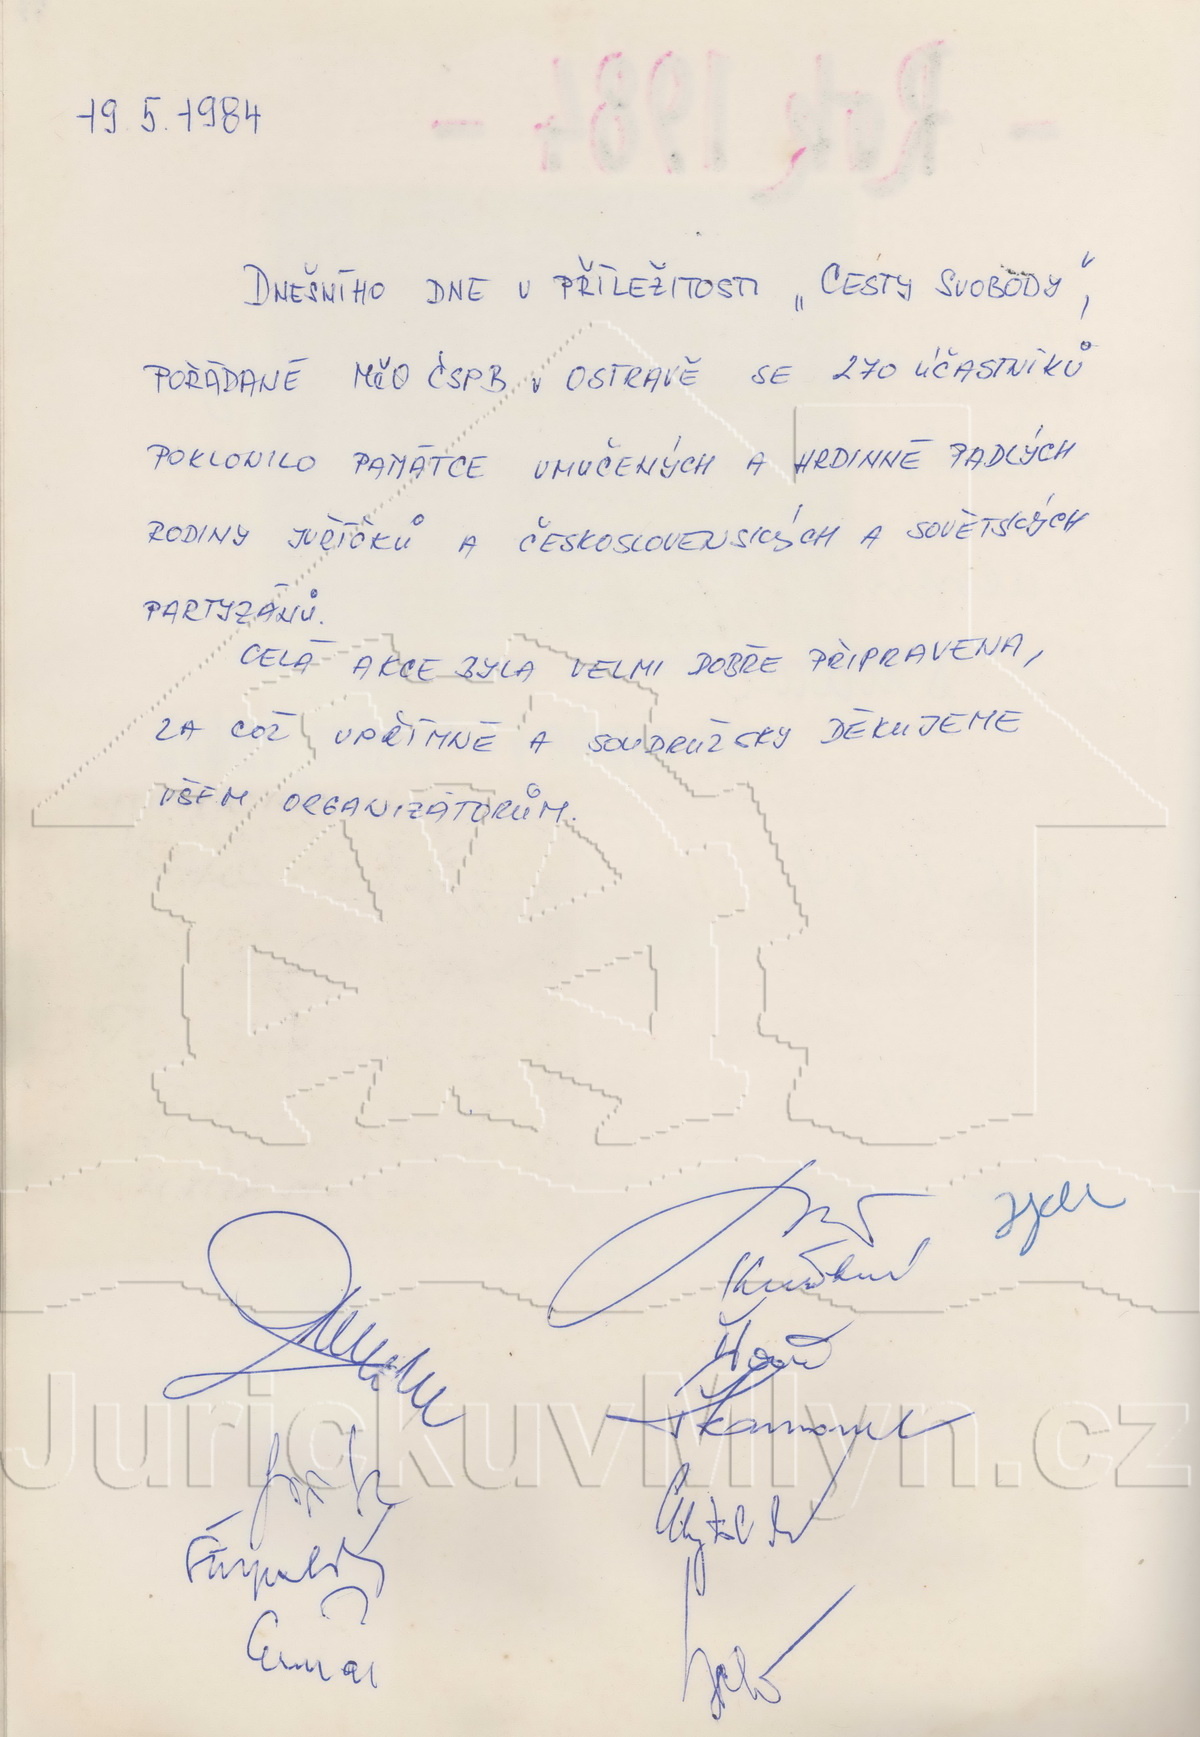 19.5.1984
- Rok 1984 -
DNEŠNÍHO DNE U PŘÍLEŽITOSTI „CESTY SVOBODY“,
POŘÁDANÉ MěO ČSPB v OSTRAVĚ SE 270 ÚČASTNÍKŮ
POKLONILO PAMÁTCE UMUČENÝCH A HRDINNĚ PADLÝCH
RODINY JUŘÍČKŮ A ČESKOSLOVENSKÝCH A SOVĚTSKÝCH
PARTYZÁNŮ.
CELÁ AKCE BYLA VELMI DOBŘE PŘIPRAVENA,
ZA COŽ UPŘÍMNĚ A SOUDRUŽSKY DĚKUJEME
VŠEM ORGANIZÁTORŮM.
JurickuvMlyn.cz